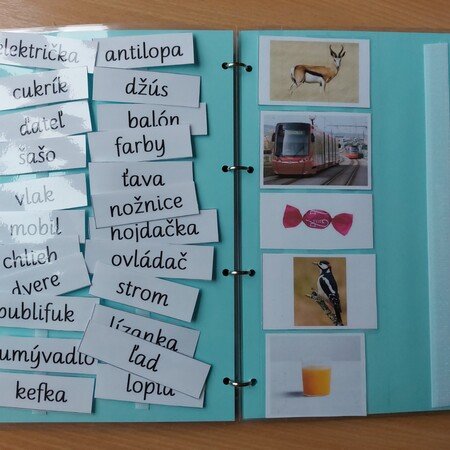 električka
antilopa
cukrík
džús
ďateľ
balón
šašo
farby
ťava
vlak
nožnice
mobil
hojdačka
chlieb
ovládač
dvere
strom
publifuk
lízanka
umývadlo
ľad
kefka
lopta